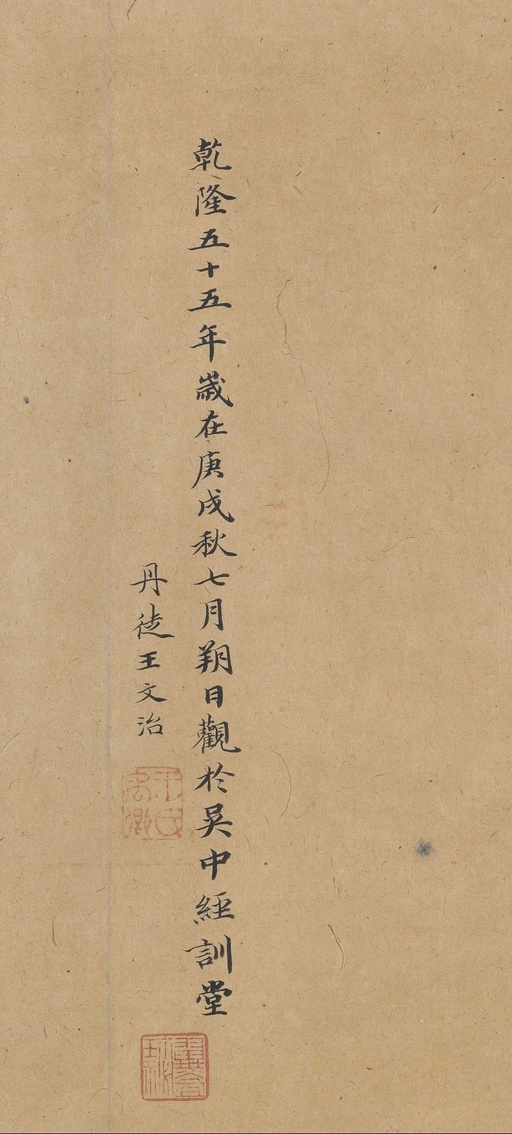 乾隆五十五年歲在庚戌秋七月朔日觀於吳中經訓堂
丹徒王文治